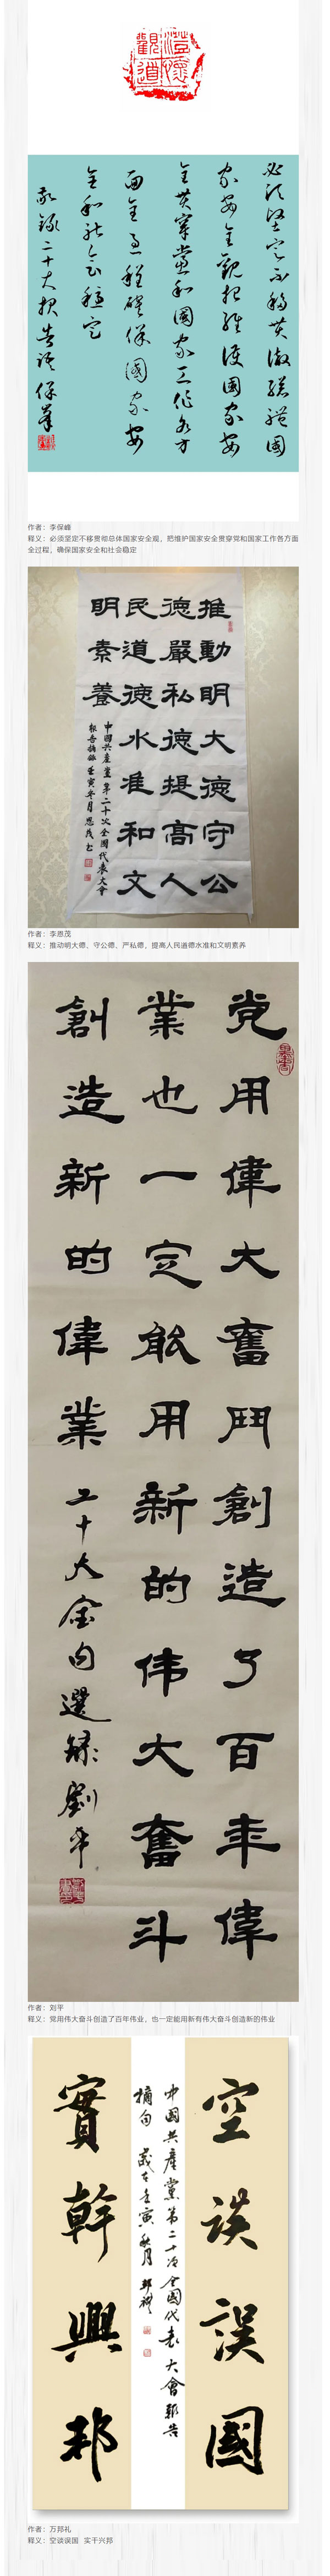 浩德
觀道
必须坚定不移贯彻总体国
家安全观把维护国家安
全贯穿党和国家工作各方
面全过程确保国家安
全和社会稳定
敬録二十大报告语保峰
作者：李保峰
释义：必须坚定不移贯彻总体国家安全观，把维护国家安全贯穿党和国家工作各方面
全过程，确保国家安全和社会稳定
推動明大德守公
德嚴私德提高人
民道德水准和文
明素養
中國共產黨第二十次全國代表大會
報告摘録壬寅冬月恩茂書
作者：李恩茂
释义：推动明大德、守公德、严私德，提高人民道德水准和文明素养
党用偉大奮鬥創造了百年偉
業也一定能用新的伟大奮斗
創造新的偉業
二十大金句選録劉平
作者：刘平
释义：党用伟大奋斗创造了百年伟业，也一定能用新有伟大奋斗创造新的伟业
空谈誤國
中國共產黨第二十次全國代表大會報告
摘句歲在壬寅秋月邦禮
實幹興邦
作者：万邦礼
释义：空谈误国 实干兴邦